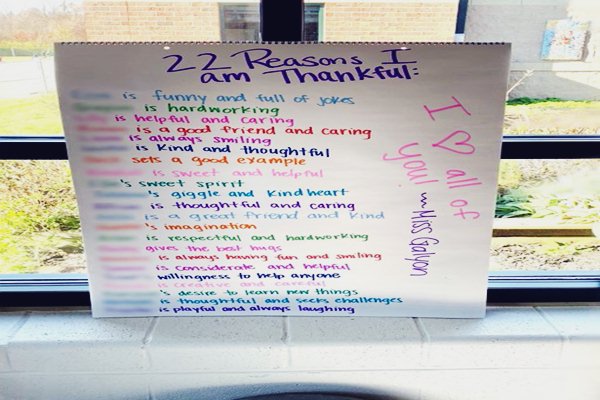 22 Reasons I
am Thankful:
is funny and full of jokes
is hardworking
is helpful and caring
is a good friend and caring
is always smiling
is kind and thoughtful
sets a good example
is sweet and helpful
's sweet spirit
's giggle and kind heart
is thoughtful and caring
is a great friend and kind
's imagination
is respectful and hardworking
gives the best hugs
is always having fun and smiling
is considerate and helpful
willingness to help anyone
is creative and careful
's desire to learn new things
is thoughtful and seeks challenges
is playful and always laughing
I ♡ all of
you! ~Miss Galyon